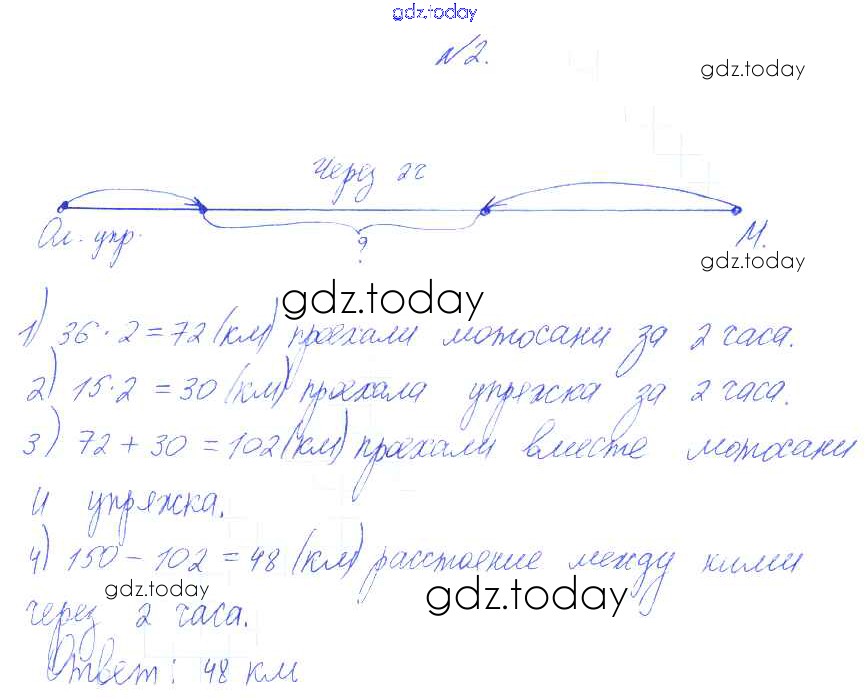 gdz.today
№2.
gdz.today
Через 2ч
Ол. упр. ? М.
gdz.today
gdz.today
1) 36·2=72 (км) проехали мотосани за 2 часа.
2) 15·2 = 30 (км) проехала упряжка за 2 часа.
3) 72 + 30 = 102 (км) проехали вместе мотосани
и упряжка.
4) 150 - 102 = 48 (км) расстояние между ними
gdz.today gdz.today
через 2 часа.
Ответ: 48 км